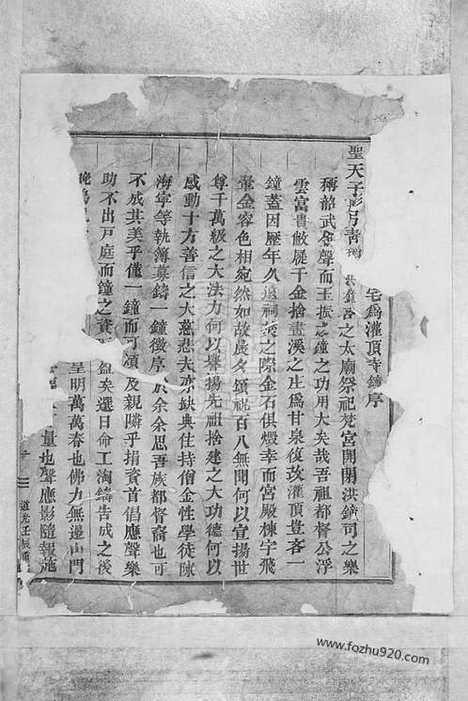 宅爲灌頂寺鐘序
聖天子彤弓靑
之太廟祭祀梵宮開閉洪鐘司之樂
稱韶武金聲而玉振之鐘之功用大矣哉吾祖都督公浮
雲富貴敝屣千金捨畫溪之庄爲甘泉復改灌頂豈吝一
鐘蓋因歷年久遠祠之際金石俱燬幸而宮殿棟宇飛
金容色相宛然如故晨夕頌祝百八無聞何以宣揚世
尊千萬級之大法力何以譽揚先祖捨建之大功德何以
感動十方善信之大慈悲夫亦缺典住持僧金性學徒陳
海寧等執簿募鑄一鐘徵序於余余思吾族都督裔也可
不成其美乎僅一鐘而可頌及親隣乎捐資首倡應聲樂
助不出戸庭而鐘之資矣選日命工淘鑄告成之後
晚鳴皇明萬萬春也佛力無邊山門
量也聲應影隨報施
道光壬
www.fozhu920.com